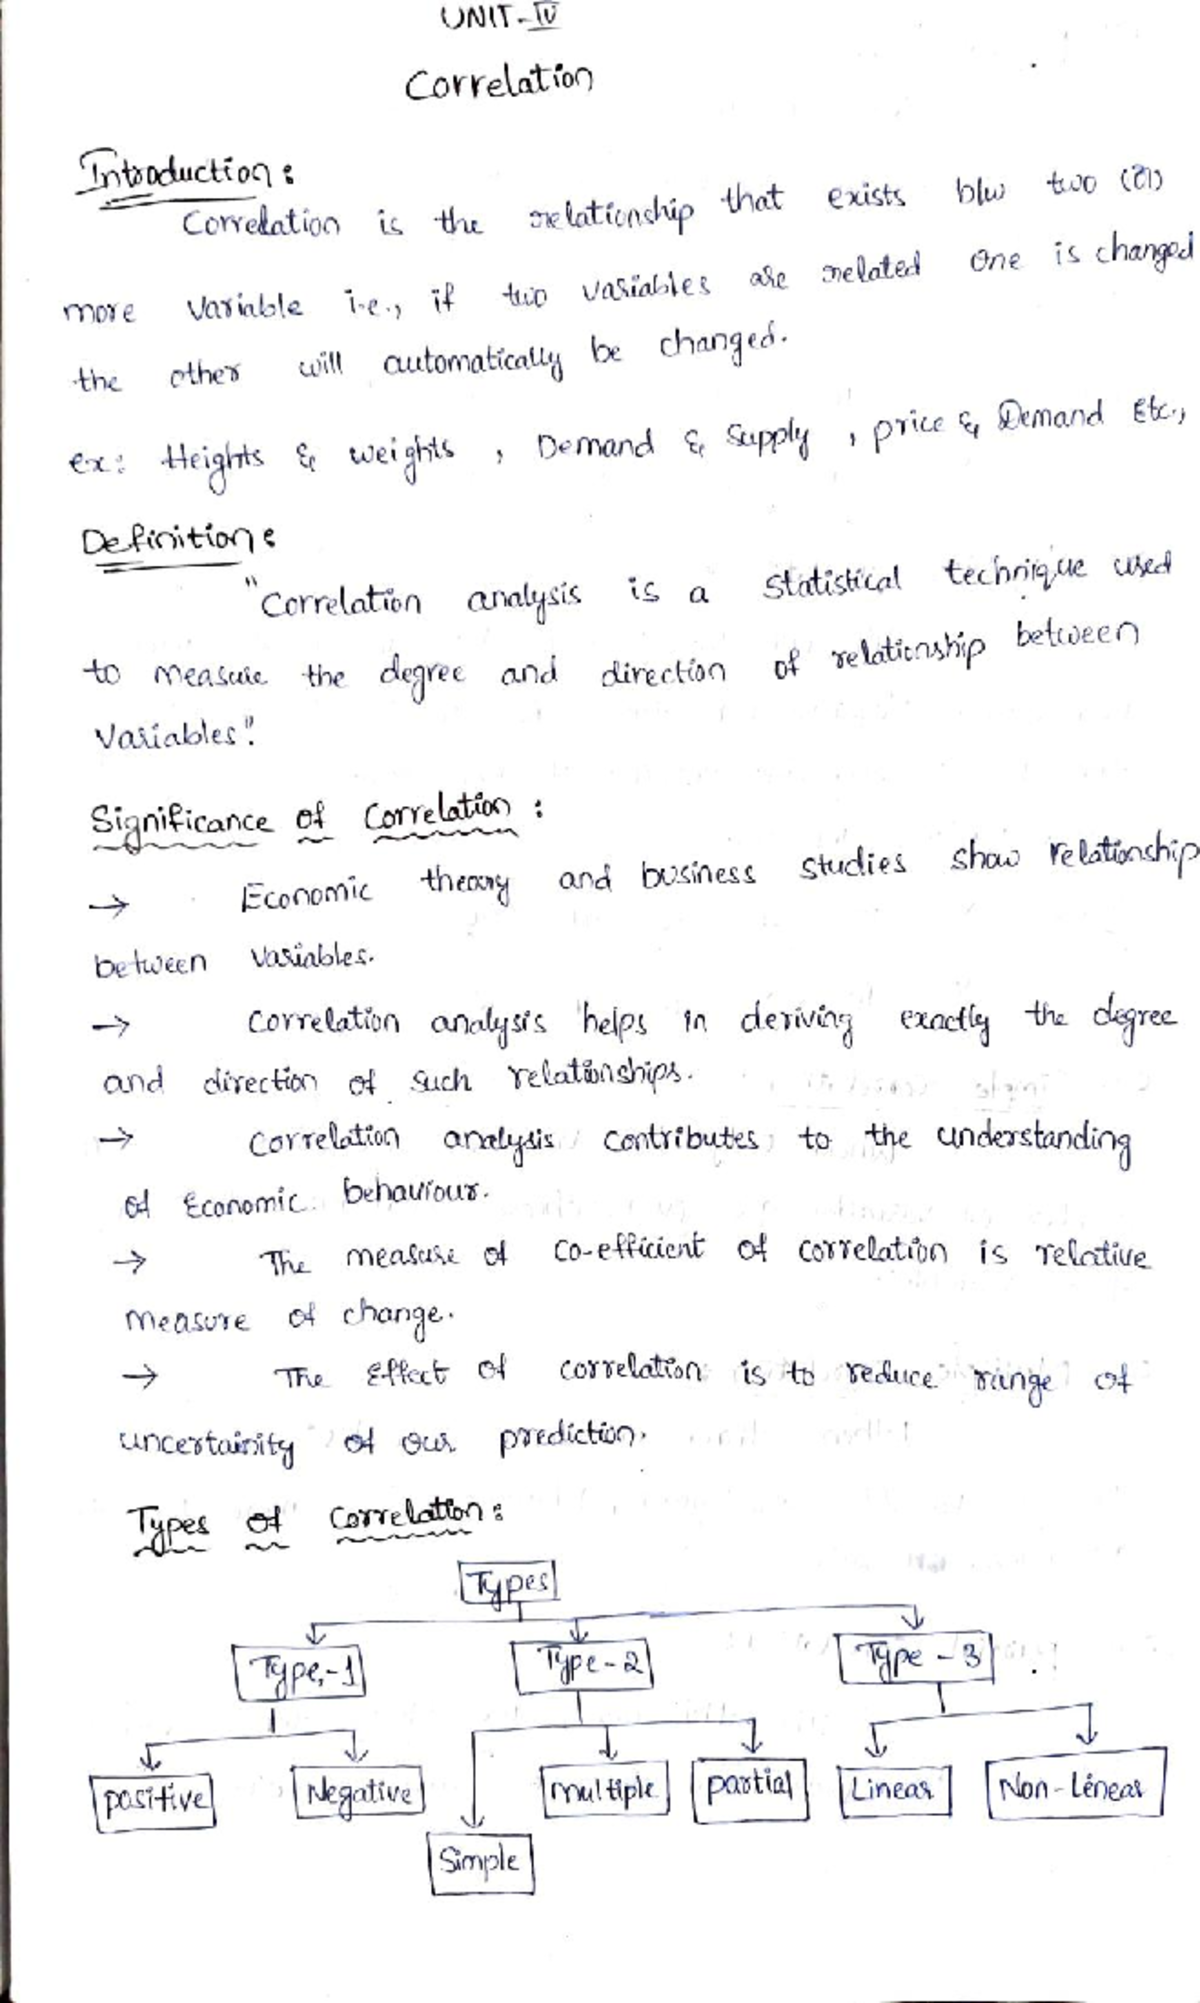 UNIT-IV
Correlation
Introduction:
Correlation is the relationship that exists b/w two (or)
more variable i.e., if two variables are related one is changed
the other will automatically be changed.
ex: Heights & weights, Demand & Supply, price & Demand Etc.,
Definition:
"Correlation analysis is a statistical technique used
to measure the degree and direction of relationship between
variables".
Significance of Correlation:
→ Economic theory and business studies show relationship
between variables.
→ Correlation analysis helps in deriving exactly the degree
and direction of such relationships.
→ Correlation analysis contributes to the understanding
of Economic behaviour.
→ The measure of co-efficient of correlation is relative
measure of change.
→ The Effect of correlation is to reduce range of
uncertainity of our prediction.
Types of Correlation:
Types
Type-1 Type-2 Type-3
positive Negative multiple partial Linear Non-Linear
Simple